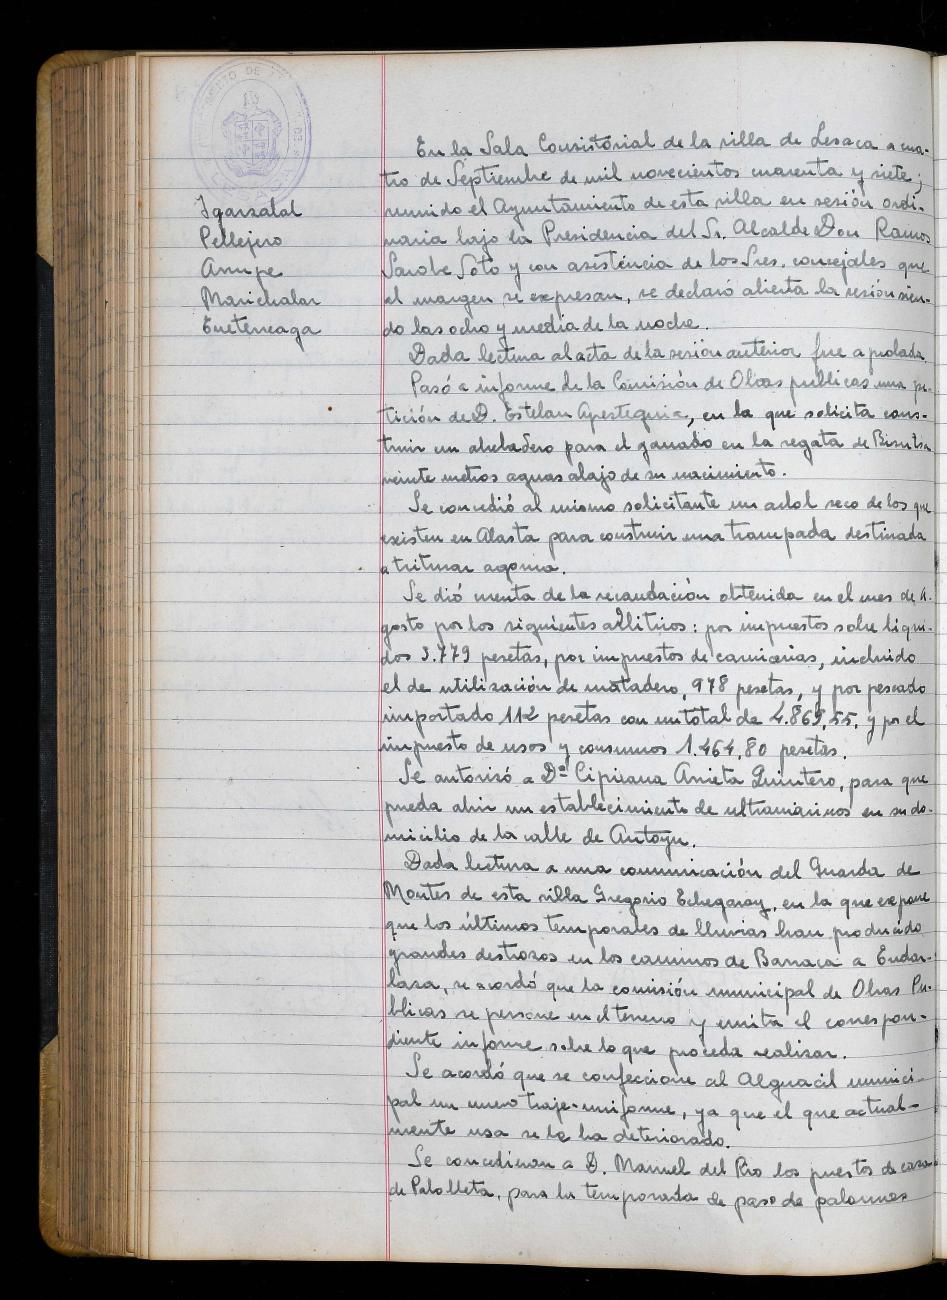 AYUNTAMIENTO DE
LESACA
Igarzabal
Pellejero
Arrupe
Marichalar
En la Sala Consistorial de la villa de Lesaca a cua-
tro de Septiembre de mil novecientos cuarenta y siete;
reunido el Ayuntamiento de esta villa en sesión ordi-
naria bajo la Presidencia del Sr. Alcalde Don Ramos
Sarobe Soto y con asistencia de los Sres. concejales que
al margen se expresan, se declaró abierta la sesión sien-
do las ocho y media de la noche.
Dada lectura al acta de la sesión anterior fue aprobada
Pasó a informe de la Comisión de Obras publicas una pe-
tición de D. Esteban Apesteguia, en la que solicita cons-
truir un abebadero para el ganado en la regata de
veinte metros aguas abajo de su nacimiento.
Se concedió al mismo solicitante un arbol seco de los que
existen en Alasta para construir una trampada destinada
a triturar argoma.
Se dió cuenta de la recaudación obtenida en el mes de A-
gosto por los siguientes arbitrios: por impuestos sobre liqui-
dos 3.779 pesetas, por impuestos de carnicerias, incluido
el de utilización de matadero, 978 pesetas, y por pescado
importado 112 pesetas con un total de 4.869,55, y por el
impuesto de usos y consumos 1.464,80 pesetas.
Se autorizó a Dª Cipriana Arrieta Quintero, para que
pueda abrir un establecimiento de ultramarinos en su do-
micilio de la calle de
Dada lectura a una comunicación del Guarda de
Montes de esta villa Gregorio Echegaray, en la que expone
que los últimos temporales de lluvias han producido
grandes destrozos en los caminos de Barraca a Endar-
laza, se acordó que la comisión municipal de Obras Pu-
blicas se persone en el terreno y emita el correspon-
diente informe sobre lo que proceda realizar.
Se acordó que se confeccione al Alguacil munici-
pal un nuevo traje-uniforme, ya que el que actual-
mente usa se le ha deteriorado.
Se concedieron a D. Manuel del Rio los puestos de caza
de Palolleta, para la temporada de paso de palomas